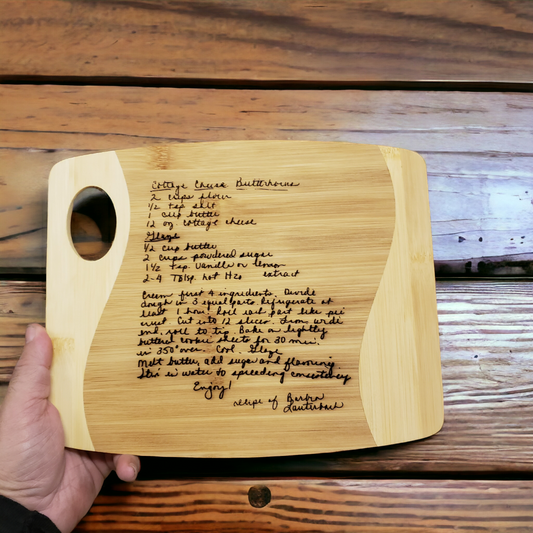 Cottage Cheese Butterhorns
2 cups flour
1/2 tsp salt
1 cup butter
12 oz. cottage cheese
Glaze
1/2 cup butter
2 cups powdered sugar
1 1/2 tsp. vanilla or lemon
2-4 Tblsp. hot H2O extract
Cream first 4 ingredients. Divide
dough in 3 equal parts Refrigerate at
least 1 hour! Roll each part like pie
crust Cut into 12 slices. From wide
end, roll to tip. Bake on lightly
buttered cookie sheets for 30 min.
in 350° oven. Cool. Glaze
Melt butter, add sugar and flavoring
Stir in water to spreading consistency
Enjoy!
recipe of Barbra
Lauterbach